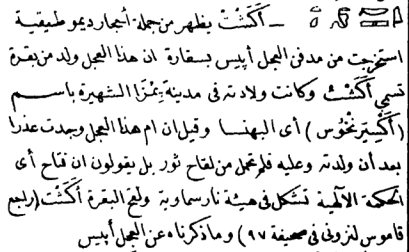 ـ أَكَشْتْ يظهر من جملة أحجار ديموطيقية
استخرجت من مدفن العجل أپيس بسقارة ان هذا العجل ولد من بقرة
تسمى أَكَشْتْ وكانت ولادته فى مدينة الشهيرة باسم
(أُكْسِيْرِنْخُوس) أى البهنسا وقيل ان ام هذا العجل وجدت عذرا
بعد أن ولدته وعليه فلم تحمل من لقاح ثور بل يقولون ان فتاح أى
الحكمة الالهية تشكل فى هيئة نار سماوية ولقح البقرة أَكَشْت (راجع
قاموس لنزونى فى صحيفة ٩٧) وما ذكرناه عن العجل أپيس